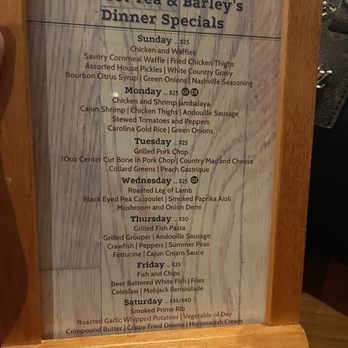 Tea & Barley's
Dinner Specials
Sunday ... $25
Chicken and Waffles
Savory Cornmeal Waffle | Fried Chicken Thighs
Assorted House Pickles | White Country Gravy
Bourbon Citrus Syrup | Green Onions | Nashville Seasoning
Monday ... $25 GF DF
Chicken and Shrimp Jambalaya
Cajun Shrimp | Chicken Thighs | Andouille Sausage
Stewed Tomatoes and Peppers
Carolina Gold Rice | Green Onions
Tuesday ... $25
Grilled Pork Chop
10oz Center Cut Bone In Pork Chop | Country Mac and Cheese
Collard Greens | Peach Gastrique
Wednesday ... $25 GF
Roasted Leg of Lamb
Black Eyed Pea Cassoulet | Smoked Paprika Aioli
Mushroom and Onion Demi
Thursday ... $30
Grilled Fish Pasta
Grilled Grouper | Andouille Sausage
Crawfish | Peppers | Summer Peas
Fettucine | Cajun Cream Sauce
Friday ... $25
Fish and Chips
Beer Battered White Fish | Fries
Coleslaw | Mobjack Remoulade
Saturday ... $35/$40
Smoked Prime Rib
Roasted Garlic Whipped Potatoes | Vegetable of Day
Compound Butter | Crispy Fried Onions | Horseradish Cream